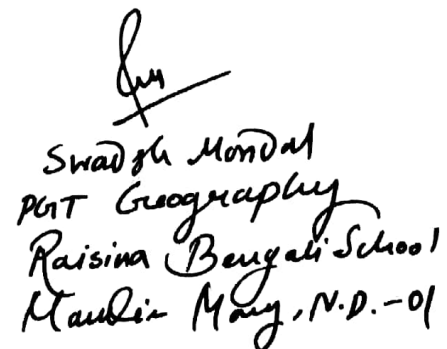 Swadesh Mondal
PGT Geography
Raisina Bengali School
Mandir Marg, N.D.-01